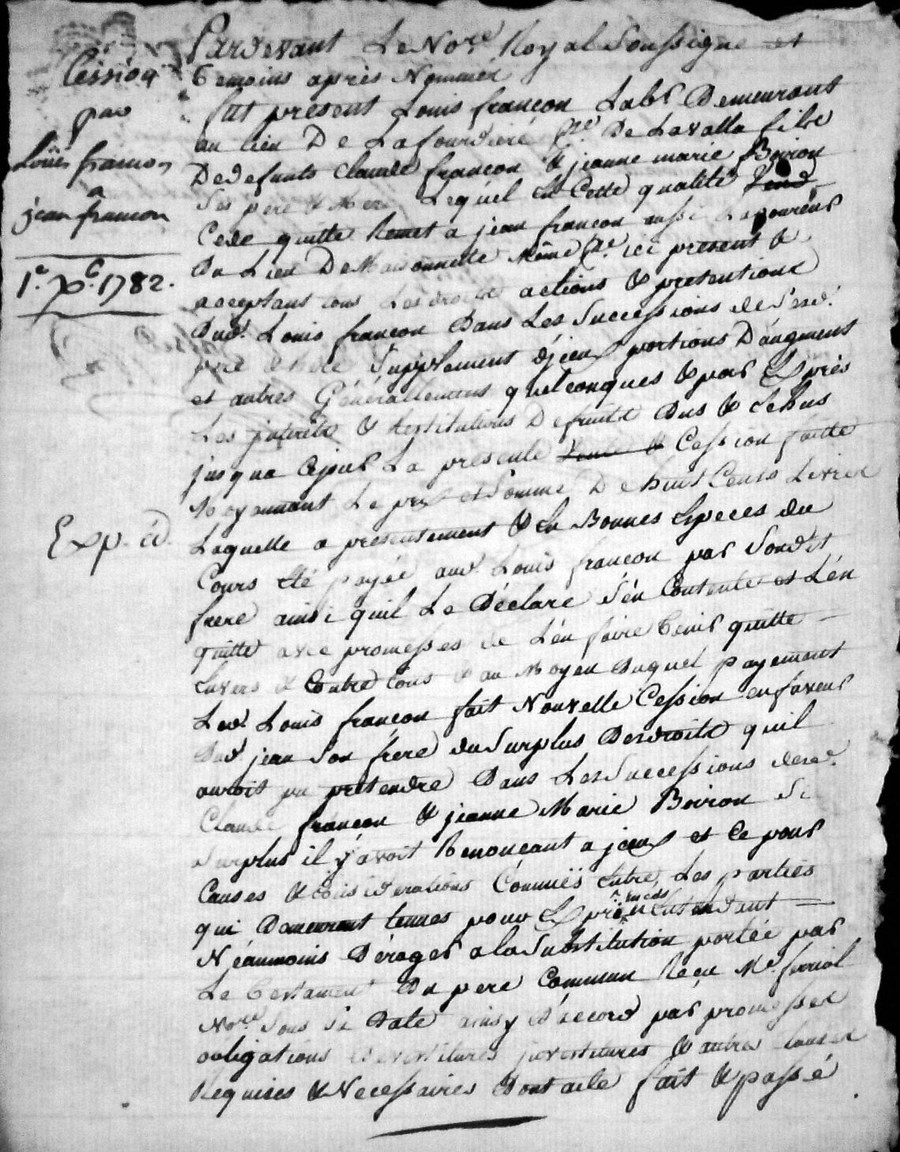 Cession
par
Louis françon
a
jean françon
1.e xb.e 1782.
Exp. éd.
Pardevant Le No.re Royal Soussigné et
temoins après Nommés
fut présent Louis françon Lab.r Demeurant
au lieu De La fourdiere p.sse De Lavalla fils
De defunts Claude françon & jeanne marie Boiron
Ses père & Mere Lequel En Cette qualité Vend
Cede quitte Remet a jean françon aussi Laboureur
Du Lieu De Maisonnette Même p.sse ici présent &
acceptant tous Les droits actions & prétentions
Dud. Louis françon Dans Les Successions de Sesd.
père & Mere Supplement d'jceux portions D'augment
et autres Générallement quelconques & par Exprès
Les jnterets & restitutions De fruits Dus & Echus
jusqua Cejour La présente Vente & Cession faitte
Moyennant Le prix et Somme De huit Cents Livres
Laquelle a présentement & En Bonnes Espèces du
Cours été payée aud. Louis françon par Sondit
frere ainsi quil Le Déclare S'en Contente et L'en
quitte avec promesses de L'en faire tenir quitte
Envers & Contre tous & au Moyen Duquel payement
Led. Louis françon fait Nouvelle Cession en faveur
Dud. jean Son frère du Surplus Desdroits quil
auroit pu pretendre Dans Les Successions desd.
Claude françon & jeanne Marie Boiron Si
Surplus il y avoit Renonceant a jceux et Ce pour
Causes & Considerations Connuës Entre Les parties
qui Demeurent tenues pour Exprimées Entendant
Néanmoins Déroger a la Substitution portée par
Le testament Du père Commun Reçu M.e
No.re Sous Sa Date ainsy D'accord par promesses
obligations devestitures jnvestitures & autres Clauses
Requises & Necessaires Dont acte fait & passé